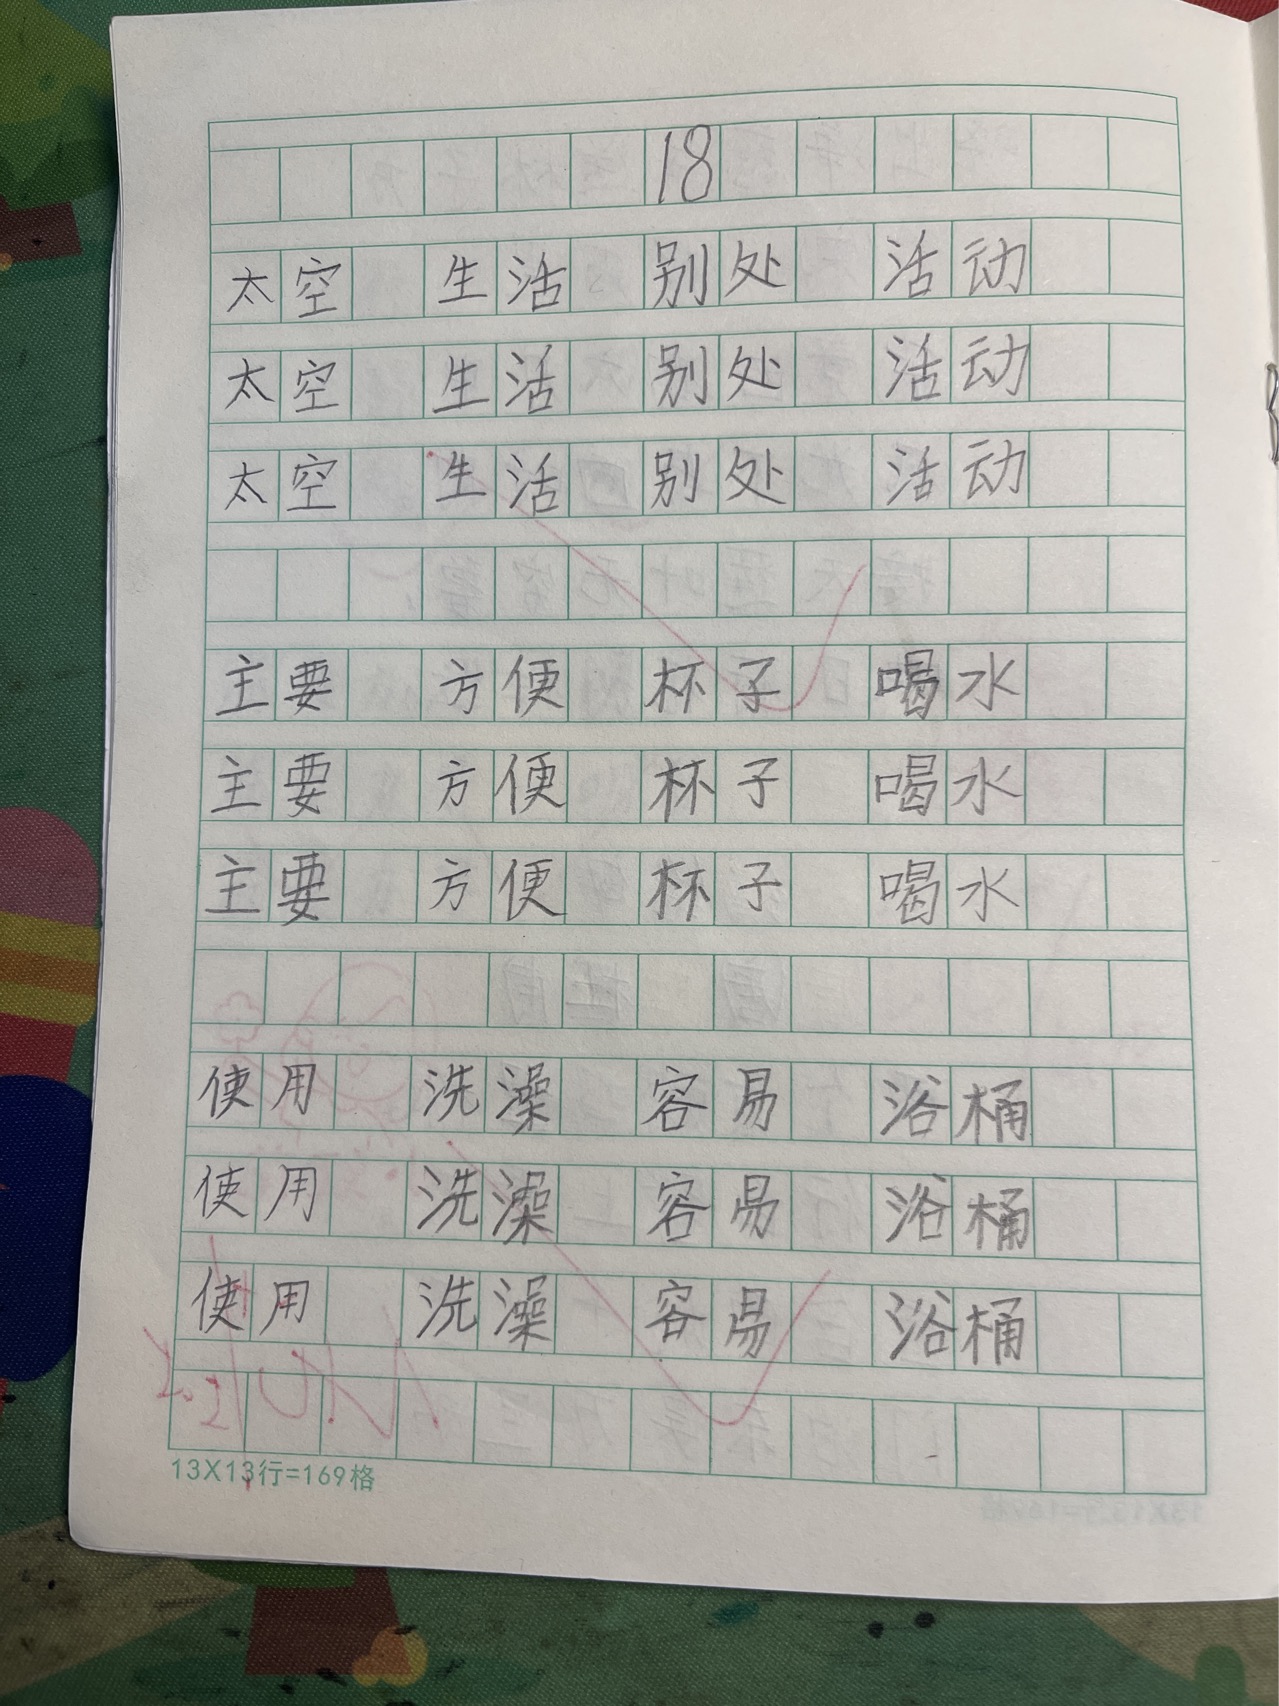 18
太空 生活 别处 活动
太空 生活 别处 活动
太空 生活 别处 活动
主要 方便 杯子 喝水
主要 方便 杯子 喝水
主要 方便 杯子 喝水
使用 洗澡 容易 浴桶
使用 洗澡 容易 浴桶
使用 洗澡 容易 浴桶
13X13行=169格